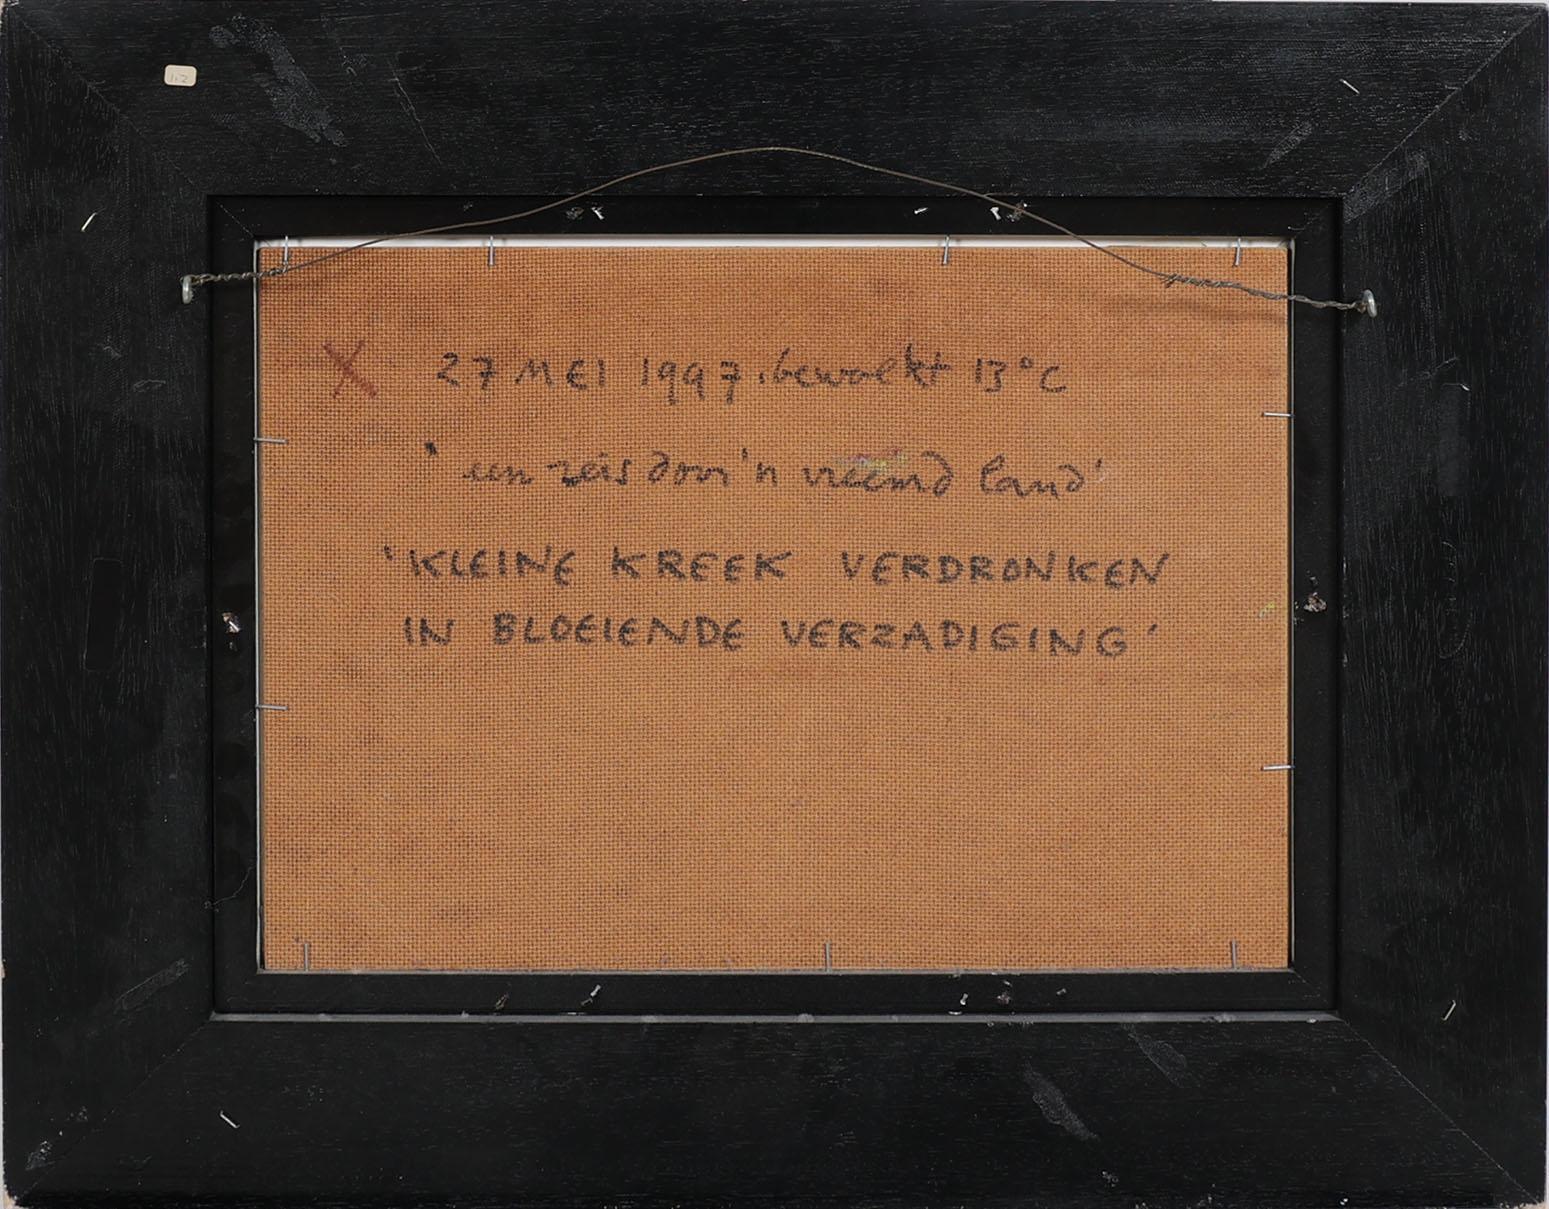 1.2
X 27 MEI 1997. bewolkt 13°C
'een reis door 'n vreemd land'
'KLEINE KREEK VERDRONKEN
IN BLOEIENDE VERZADIGING'